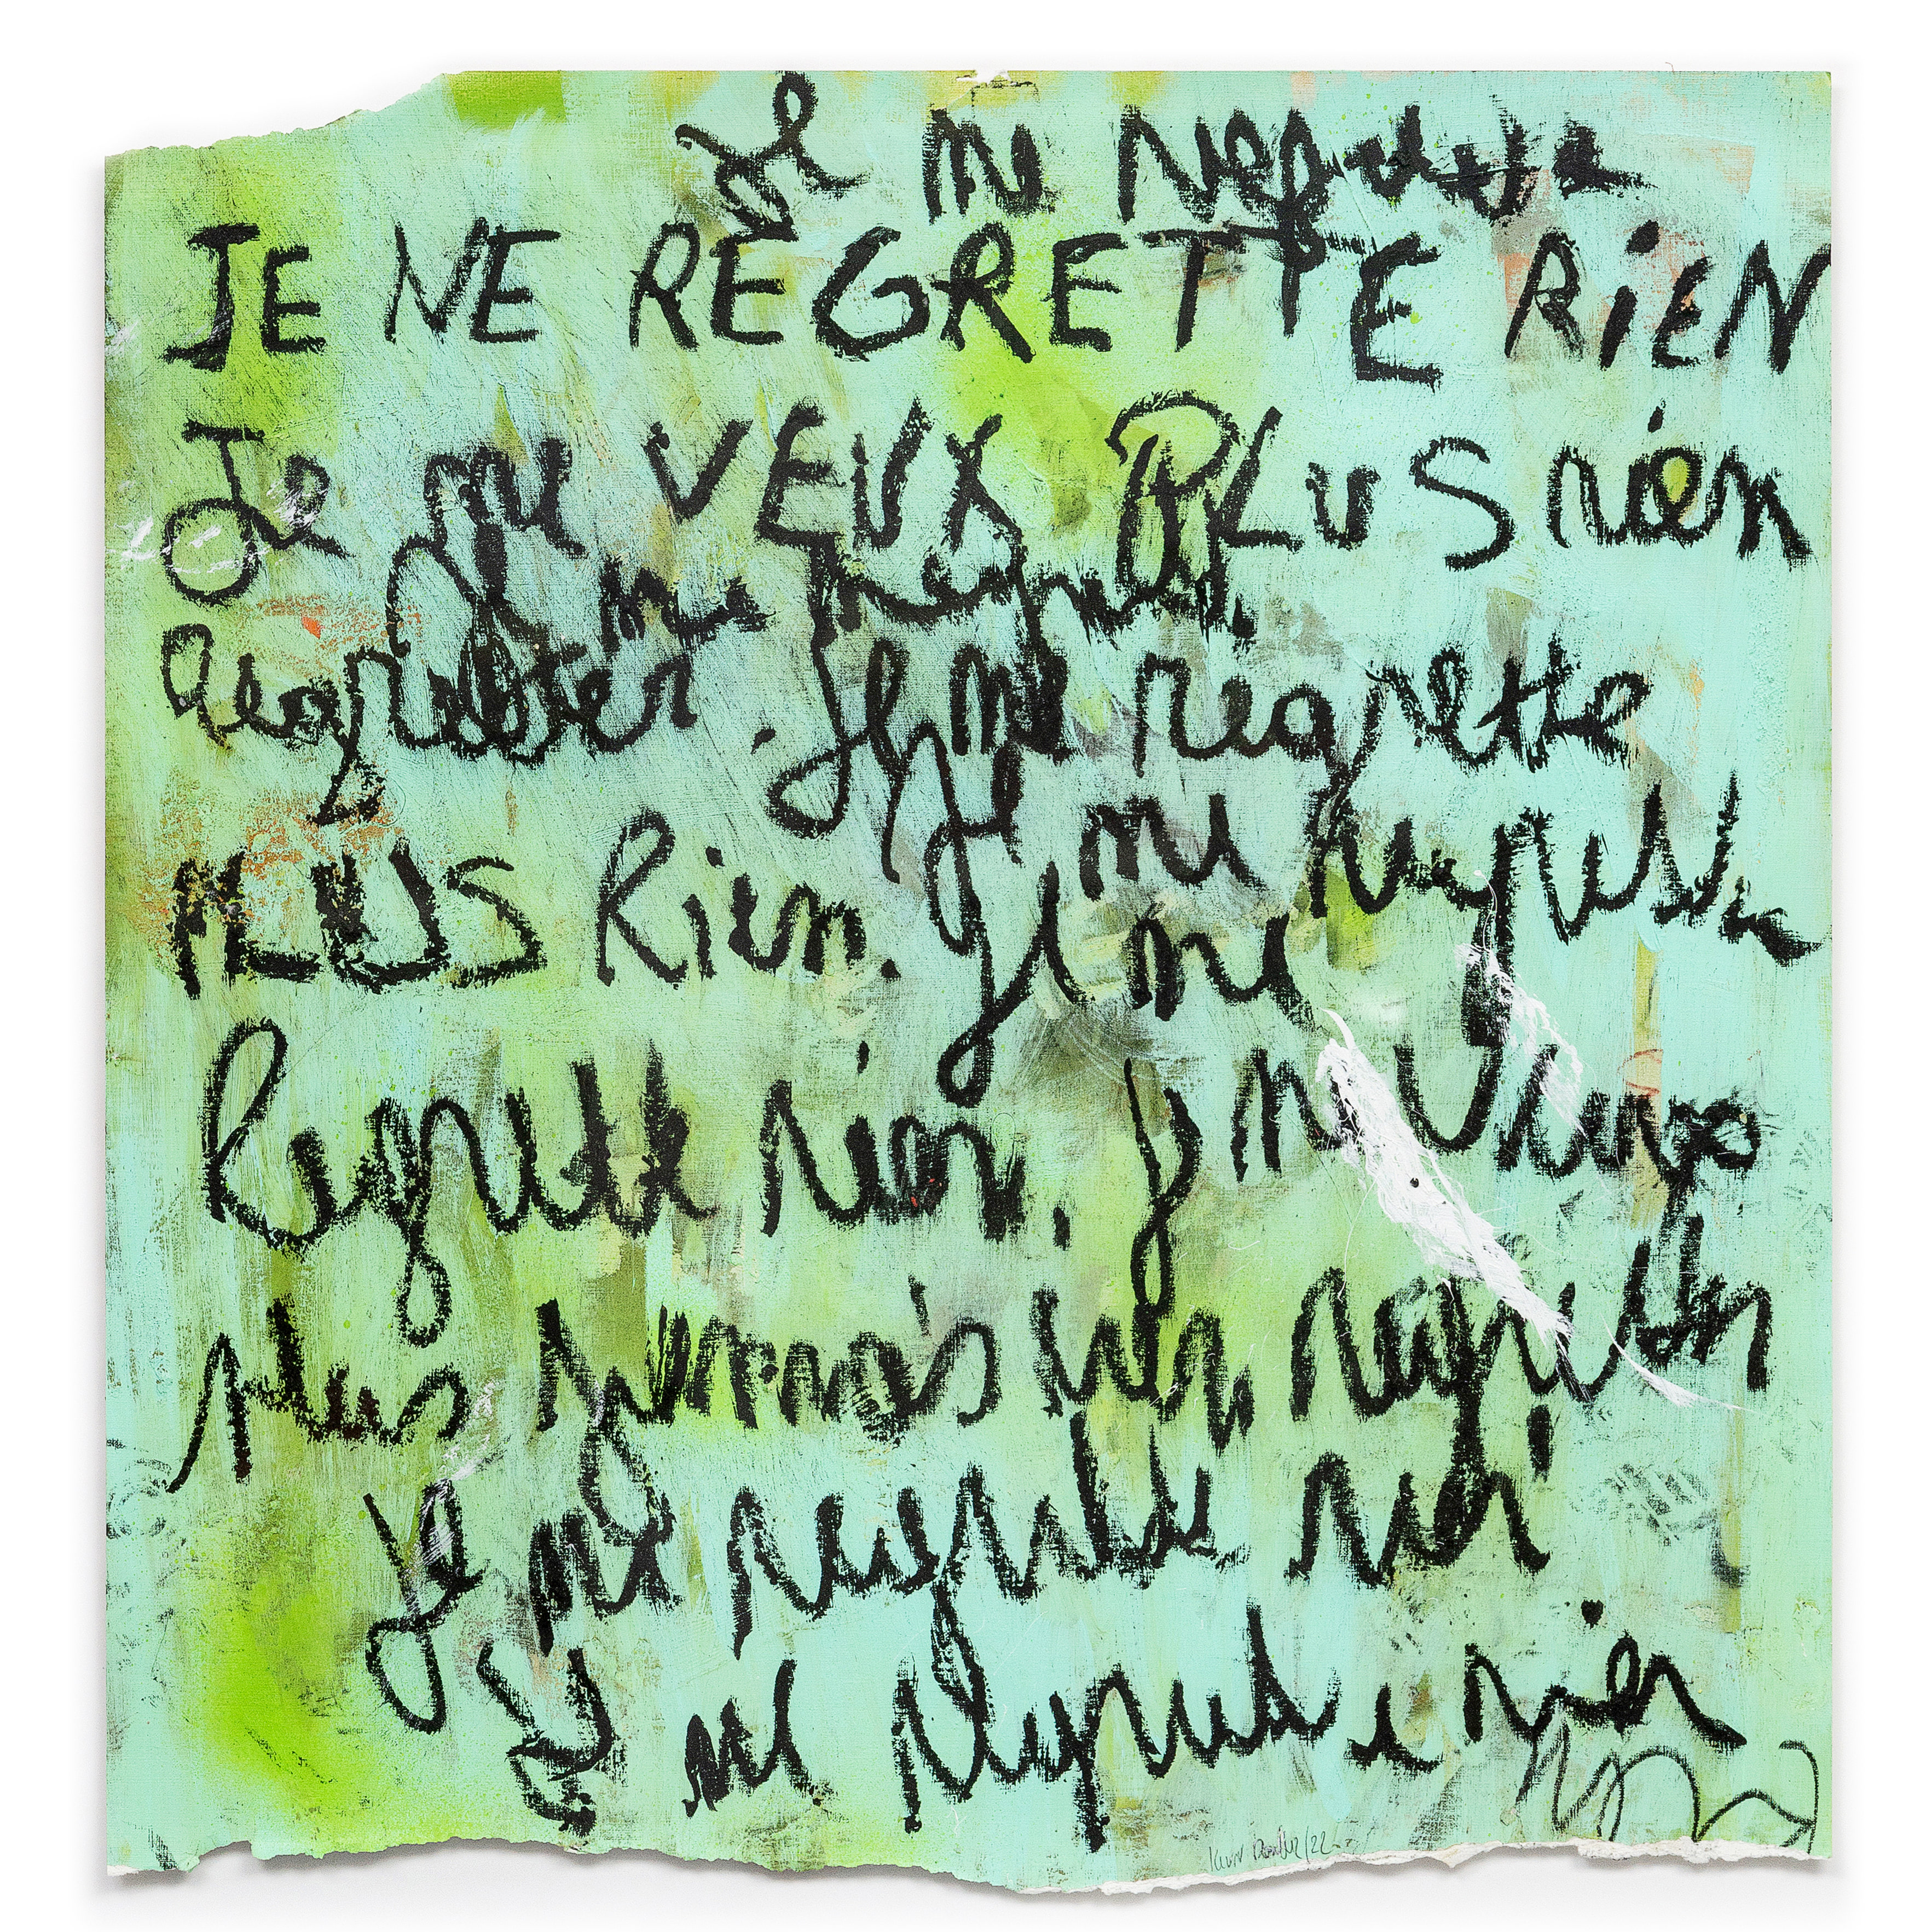 Je ne regrette
JE NE REGRETTE RIEN
Je ne VEUX PLUS rien
Je ne regrette
Regretter. Je ne regrette
Je ne regrette
PLUS Rien. Je ne
Regrette rien. Je ne veux
plus jamais rien regretter
Je ne regrette rien
Je ne regrette rien